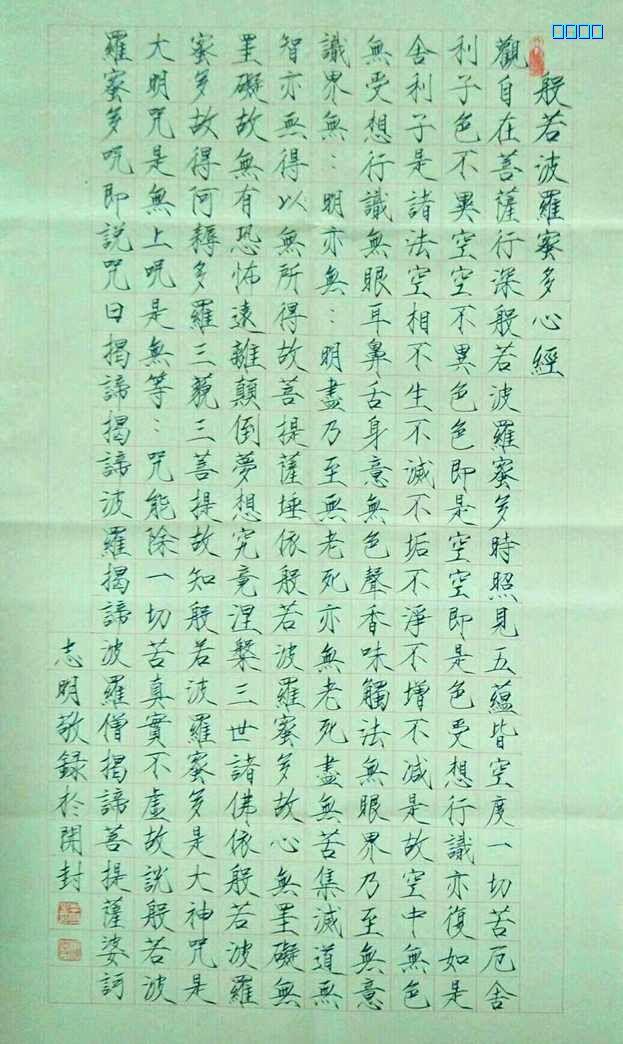 般若波羅蜜多心經
觀自在菩薩行深般若波羅蜜多時照見五蘊皆空度一切苦厄舍
利子色不異空空不異色色即是空空即是色受想行識亦復如是
舍利子是諸法空相不生不滅不垢不淨不增不減是故空中無色
無受想行識無眼耳鼻舌身意無色聲香味觸法無眼界乃至無意
識界無：明亦無：明盡乃至無老死亦無老死盡無苦集滅道無
智亦無得以無所得故菩提薩埵依般若波羅蜜多故心無罣礙無
罣礙故無有恐怖遠離顛倒夢想究竟涅槃三世諸佛依般若波羅
蜜多故得阿耨多羅三藐三菩提故知般若波羅蜜多是大神咒是
大明咒是無上咒是無等：咒能除一切苦真實不虛故說般若波
羅蜜多咒即說咒曰揭諦揭諦波羅揭諦波羅僧揭諦菩提薩婆訶
志明敬錄於開封